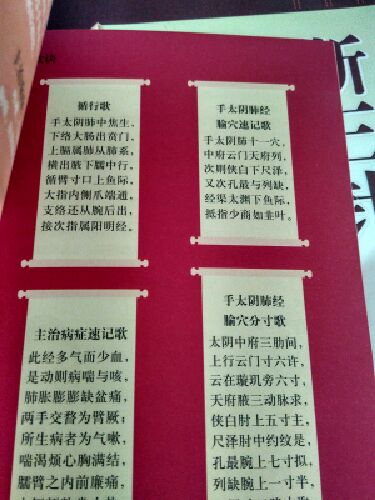 循行歌
手太阴肺中焦生，
下络大肠出贲门，
上膈属肺从肺系，
横出腋下臑中行，
循臂寸口上鱼际，
大指内侧爪端通，
支络还从腕后出，
接次指属阳明经。
手太阴肺经
腧穴速记歌
手太阴肺十一穴，
中府云门天府列，
次则侠白下尺泽，
又次孔最与列缺，
经渠太渊下鱼际，
抵指少商如韭叶。
主治病症速记歌
此经多气而少血，
是动则病喘与咳，
肺胀膨膨缺盆痛，
两手交瞀为臂厥，
所生病者为气嗽，
喘渴烦心胸满结，
臑臂之内前廉痛，
手太阴肺经
腧穴分寸歌
太阴中府三肋间，
上行云门寸六许，
云在璇玑旁六寸，
天府腋三动脉求，
侠白肘上五寸主，
尺泽肘中约纹是，
孔最腕上七寸拟，
列缺腕上一寸半，
新